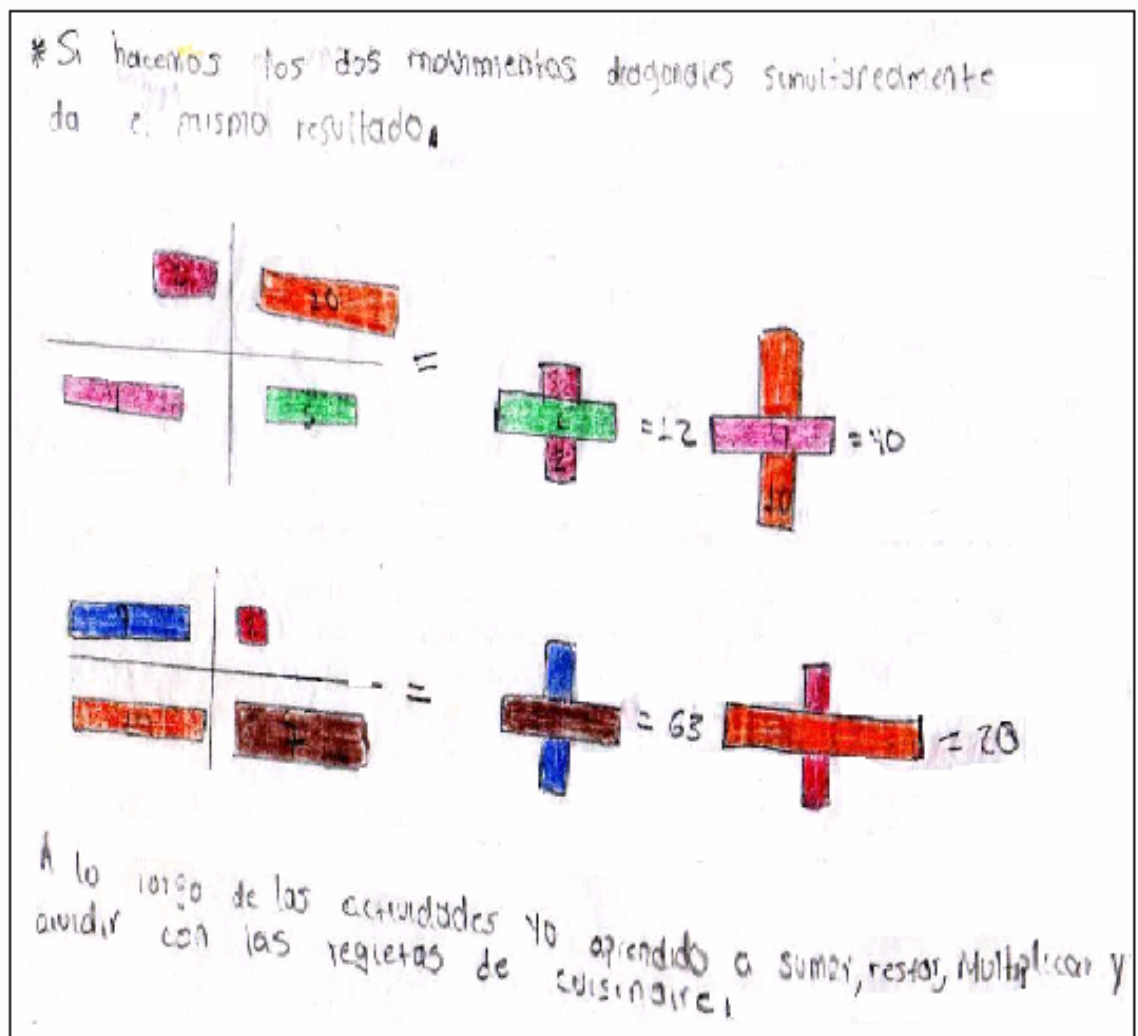 * Si hacemos los dos movimientos diagonales simultaneamente
da el mismo resultado.
10
=
=12
=40
2
10
9
=
= 63
= 20
10
7
A lo largo de las actividades yo aprendido a sumar, restar, Multiplicar y
dividir con las regletas de cuisinaire.